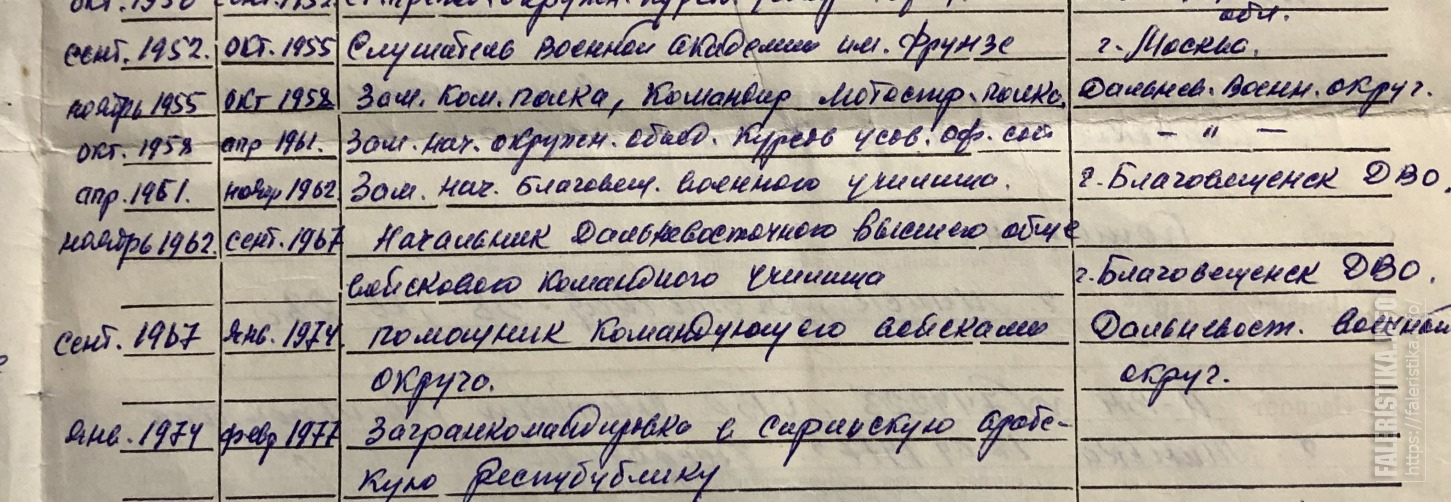 обл.
сент. 1952. окт. 1955 Слушатель Военной Академии им. Фрунзе г. Москва.
ноябрь 1955 окт 1958 Зам. Ком. полка, Командир мотостр. полка. Дальнев. Военн. округ.
окт. 1958 апр 1961. Зам. нач. окружн. объед. курсов усов. оф. сост — " —
апр. 1961. ноябр 1962. Зам. нач. Благовещ. военного училища. г. Благовещенск ДВО.
ноябрь 1962. сент. 1967 Начальник Дальневосточного высшего обще
войскового командного училища г. Благовещенск ДВО.
сент. 1967 янв. 1974. помощник Командующего войсками Дальневост. военный
округа. округ.
янв. 1974 февр 1977 Загранкомандировка в Сирийскую арабс-
кую республику
FALERISTIKA.INFO
https://faleristika.info/